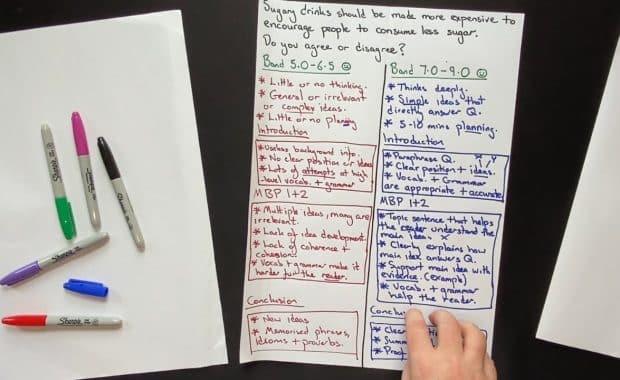 Sugary drinks should be made more expensive to
encourage people to consume less sugar.
Do you agree or disagree?
Band 5.0-6.5
* Little or no thinking.
* General or irrelevant
or complex ideas.
* Little or no planning
Introduction
* Useless background info.
* No clear position or ideas
* Lots of attempts at high
-level vocab. + grammar
MBP 1+2
* Multiple ideas, many are
irrelevant.
* Lack of idea development.
* Lack of coherence +
cohesion.
* Vocab + grammar make it
harder for the reader.
Conclusion
* New ideas
* Memorised phrases,
idioms + proverbs.
Band 7.0-9.0
* Thinks deeply.
* Simple ideas that
directly answer Q.
* 5-10 mins planning.
Introduction
* Paraphrase Q. X, Y
* Clear position + ideas.
* Vocab. + Grammar
are appropriate + accurate
MBP 1+2
* Topic sentence that helps
the reader understand the
main idea. X
* Clearly explains how
main idea answers Q.
* Support main idea with
evidence. (example)
* Vocab. + grammar
help the reader.
* Clear
* Summ
* Proof
Sharpie
Sharpie
Sharpie
Sharpie
Sharpie